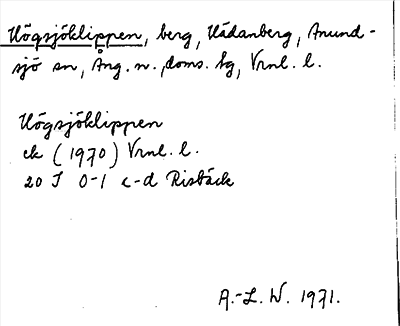 Högsjöklippen, berg, Hädanberg, Anund-
sjö sn, Ång. n. doms. lg, Vrnl. l.
Högsjöklippen
ek (1970) Vrnl. l.
20 J 0-1 c-d Risbäck
A.-L. W. 1971.